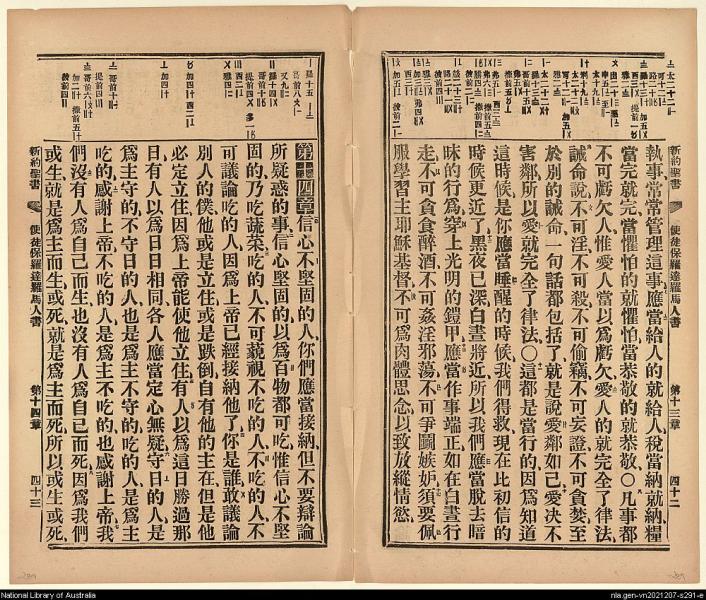 新約聖書
使徒保羅達羅馬人書
第十三章
四十二
執事常常管理這事應當給人的就給人稅當納就納糧
當完就完當懼怕的就懼怕當恭敬的就恭敬〇凡事都
不可虧欠人惟愛人當以爲虧欠愛人的就完全了律法
誡命說不可淫不可殺不可偷竊不可妄證不可貪婪至
於別的誡命一句話都包括了就是說愛鄰如己愛決不
害鄰所以愛就完全了律法〇這都是當行的因爲知道
這時候是你應當睡醒的時候我們得救現在比初信的
時候更近了黑夜已深白晝將近所以我們應當脫去暗
昧的行爲穿上光明的鎧甲應當作事端正如在白晝行
走不可貪食醉酒不可姦淫邪蕩不可爭鬬嫉妒須要佩
服學習主耶穌基督不可爲肉體思念以致放縱情慾
第十四章信心不堅固的人你們應當接納但不要辯論
所疑惑的事信心堅固的以爲百物都可吃惟信心不堅
固的乃吃蔬菜吃的人不可藐視不吃的人不吃的人不
可議論吃的人因爲上帝已經接納他了你是誰敢議論
別人的僕他或是立住或是跌倒自有他的主在但是他
必定立住因爲上帝能使他立住有人以爲這日勝過那
日有人以爲日日相同各人應當定心無疑守日的人是
爲主守的不守日的人也是爲主不守的吃的人是爲主
吃的感謝上帝不吃的人是爲主不吃的也感謝上帝我
們沒有人爲自己而生也沒有人爲自己而死因爲我們
或生就是爲主而生或死就是爲主而死所以或生或死
新約聖書
使徒保羅達羅馬人書
第十四章
四十三
National Library of Australia
nla.gen-vn2021207-s291-e